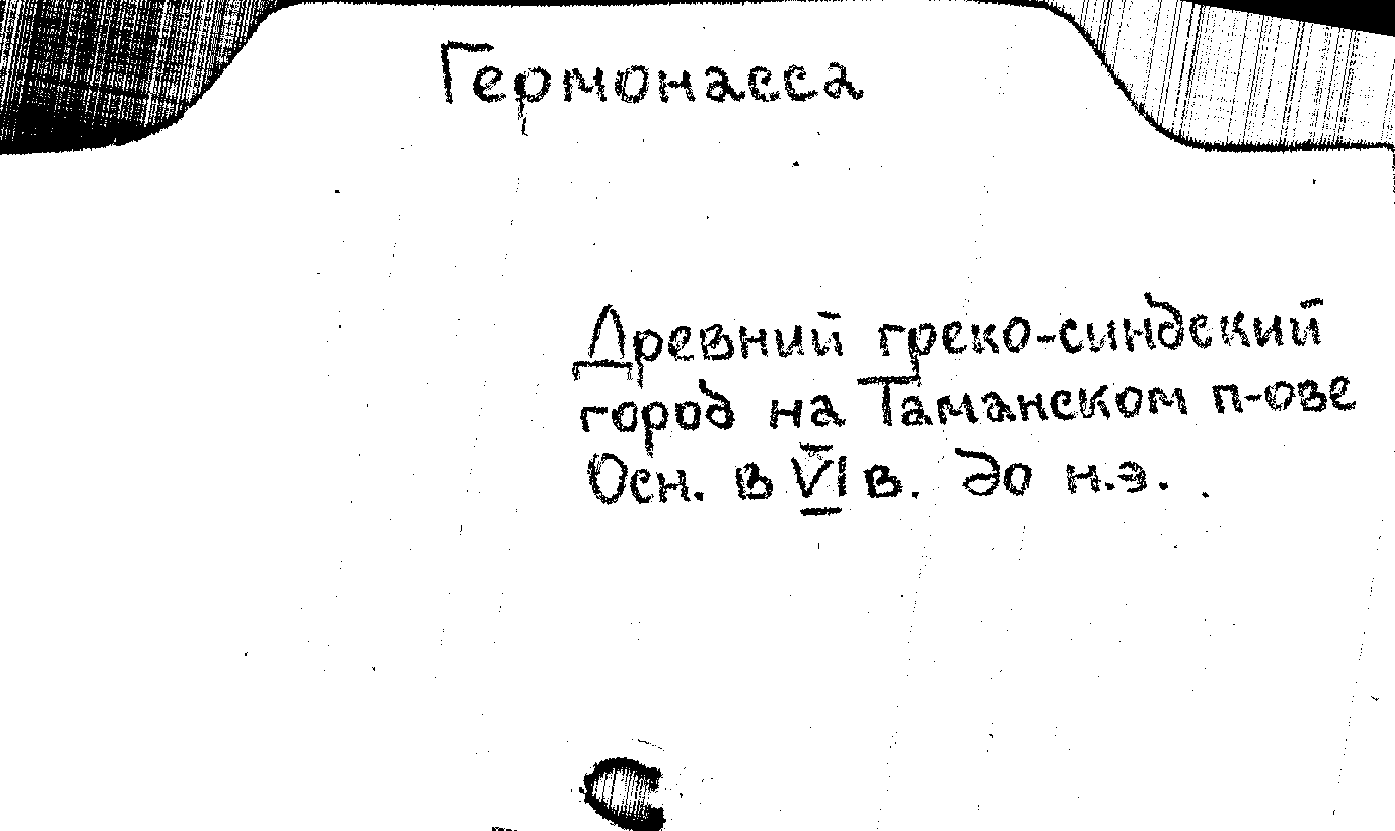 Гермонасса
Древний греко-синдский
город на Таманском п-ове
Осн. в VI в. до н.э.